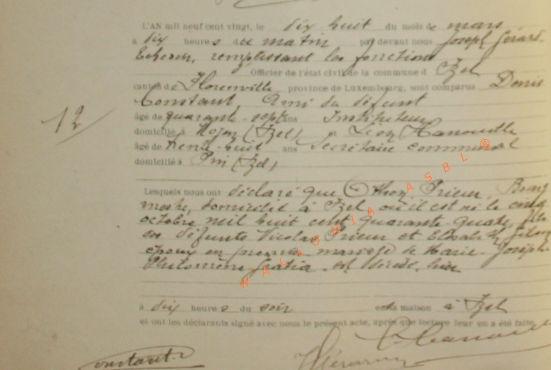 L'AN mil neuf cent vingt, le dix huit du mois de mars
à dix heures du matin par devant nous Joseph Gérard
Echevin, remplissant les fonctions
Officier de l'état civil de la commune d'Izel
canton de Florenville province de Luxembourg, sont comparus Denis
Constant, Ami du défunt
âgé de quarante-sept ans Instituteur
domicilié à (Izel) & Léon Hanouille
12
âgé de trente-huit ans secrétaire communal
domicilié à Pin (Izel)
Lesquels nous ont déclaré que Prieur, Bourg
mestre, domicilié à Izel, où il est né le cinq
octobre mil huit cent quarante quatre, fils
des défunts Nicolas Prieur et
époux en premier mariage de Marie-Joseph
Philomène est décédé, hier
à dix heures du soir en maison à Izel
et ont les déclarants signé avec nous le présent acte, après que lecture leur en a été faite
WALLONIA ASBL ©